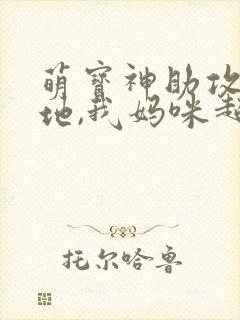 萌宝神助攻
地,我妈咪超
托尔哈鲁